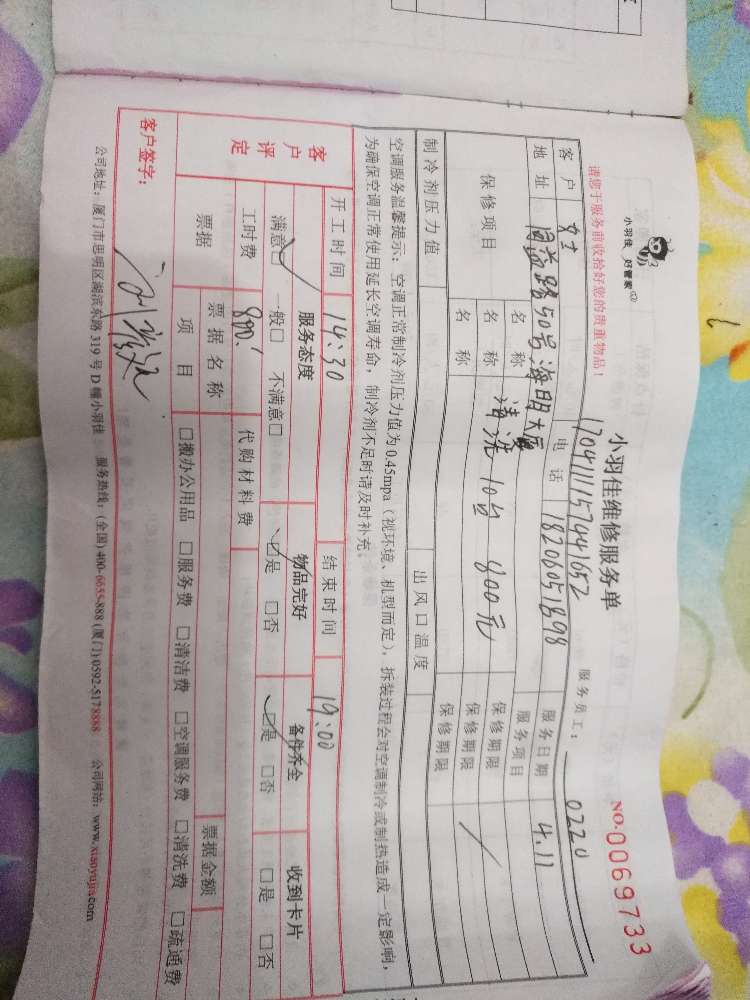 小羽佳 好管家
小羽佳维修服务单
NO.0069733
请您于服务前收拾好您的贵重物品！
17041111157441652
服务员工：
0220
客户
女士
电话
18206051898
服务日期
4.11
地址
50号海明大厦
服务项目
保修项目
名称
清洗 10台 800元
保修期限
名称
保修期限
名称
保修期限
制冷剂压力值
出风口温度
空调服务温馨提示：空调正常制冷剂压力值为0.45mpa（视环境、机型而定），拆装过程会对空调制冷或制热造成一定影响，
为确保空调正常使用延长空调寿命，制冷剂不足时请及时补充。
开工时间
14:30
结束时间
19:00
客户评定
服务态度
物品完好
备件齐全
收到卡片
满意□ 一般□ 不满意□
□是 □否
□是 □否
□是 □否
工时费
800.
代购材料费
票据
票据名称
票据金额
项目
□搬办公用品 □服务费 □清洁费 □空调服务费 □清洗费 □疏通费
客户签字：
公司地址：厦门市思明区湖滨东路 319 号 D 幢小羽佳 服务热线：(全国) 400-6655-888 (厦门) 0592-5178888 公司网站：www.xiaoyujia.com